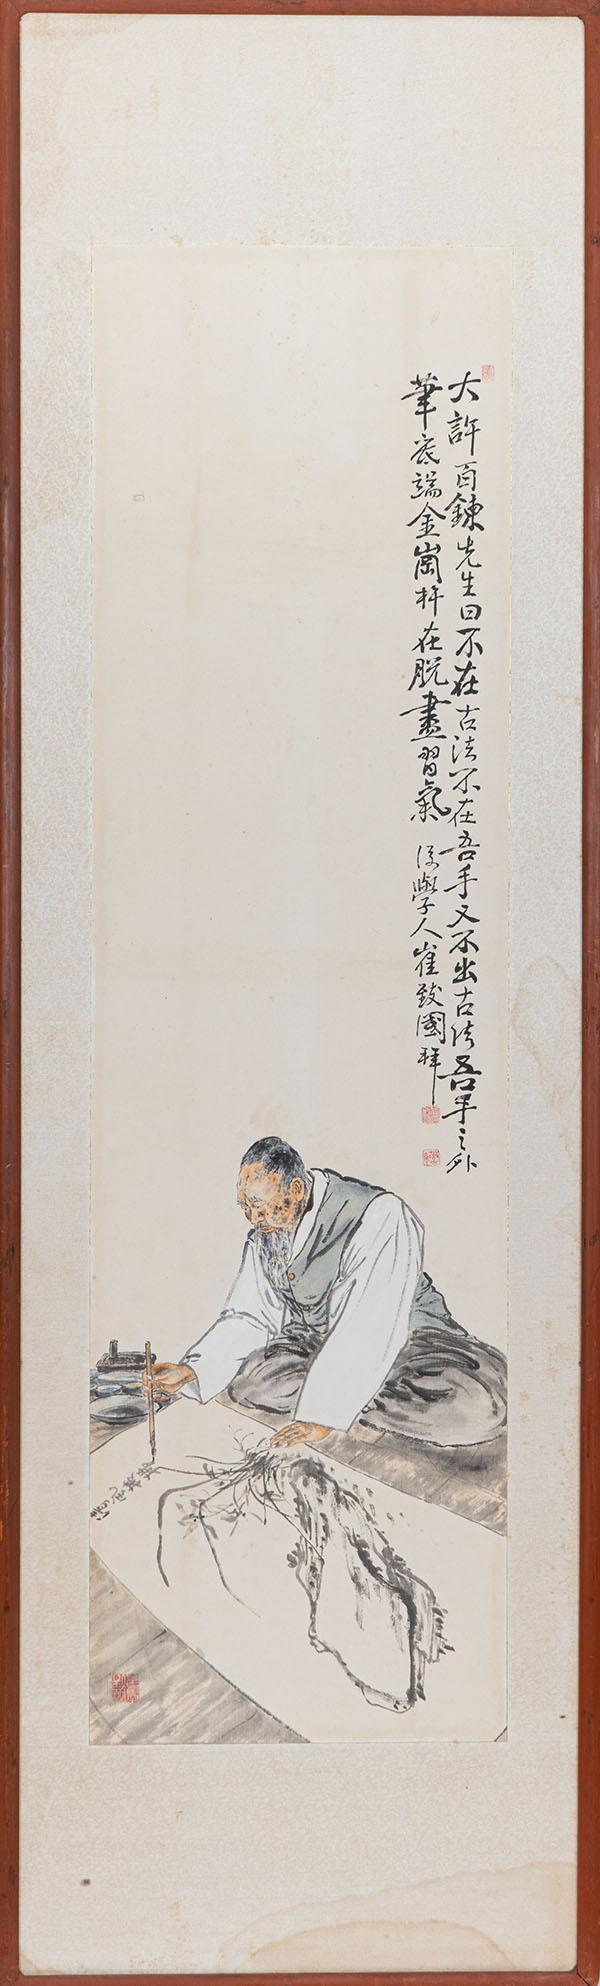 大許百鍊先生曰不在古法不在吾手又不出古法吾手之外
筆底端金崗杵在脫畫習氣
後學人崔致國拜